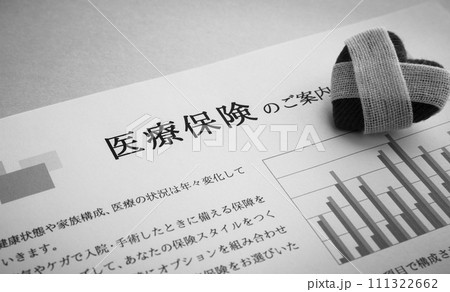 医療保険 のご案内
健康状態や家族構成、医療の状況は年々変化して
いきます。
気やケガで入院・手術したときに備える保障を
して、あなたの保険スタイルをつく
にオプションを組み合わせ
保険をお選びいた
項目で構成さ
pixta.jp - 111322662